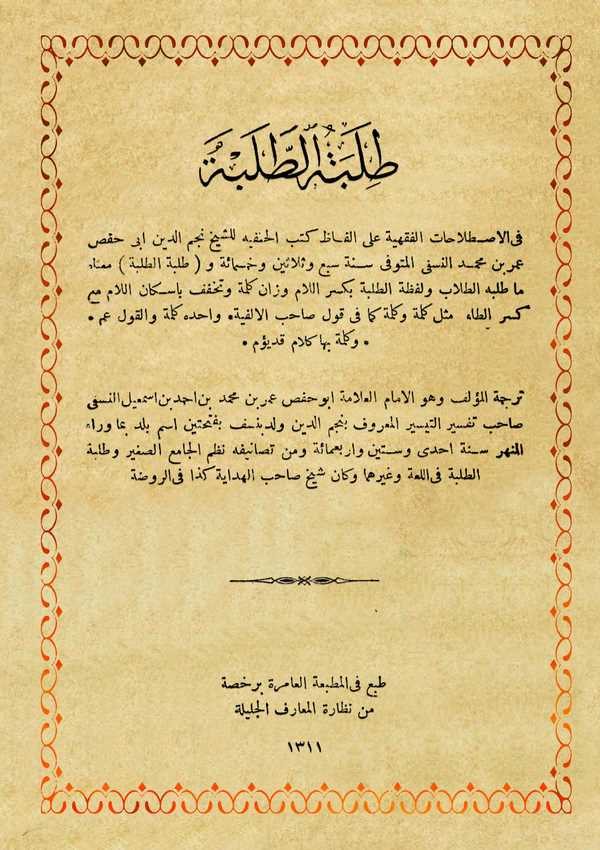 طِلْبَةُ الطَّلَبَةُ
فى الاصطلاحات الفقهية على الفاظ كتب الحنفيه للشيخ نجم الدين ابى حفص
عمر بن محمد النسفى المتوفى سنة سبع وثلاثين وخمسمائة و ( طلبة الطلبة ) معناه
ما طلبه الطلاب ولفظة الطلبة بكسر اللام وزان كلمة وتخفف باسكان اللام مع
كسر الطاء مثل كلمة وكلمة كما فى قول صاحب الالفية • واحده كلمة والقول عم •
• وكلمة بها كلام قد يؤم •
ترجمة المؤلف وهو الامام العلامة ابو حفص عمر بن محمد بن احمد بن اسمعيل النسفى
صاحب تفسير التيسير المعروف بنجم الدين ولد بنسف بفتحتين اسم بلد بما وراء
النهر سنة احدى وستين واربعمائة ومن تصانيفه نظم الجامع الصغير وطلبة
الطلبة فى اللغة وغيرهما وكان شيخ صاحب الهداية كذا فى الروضة
طبع فى المطبعة العامرة برخصة
من نظارة المعارف الجليلة
١٣١١